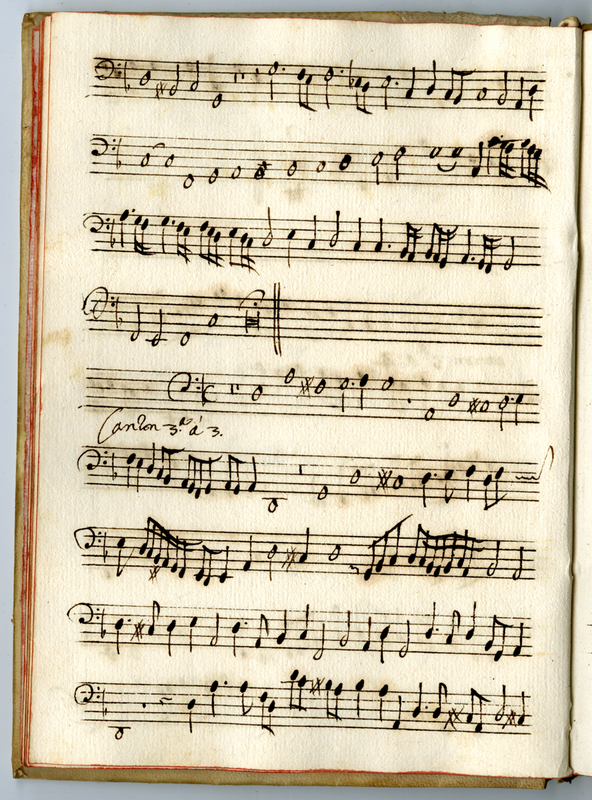 Canzon 3.ª á 3.